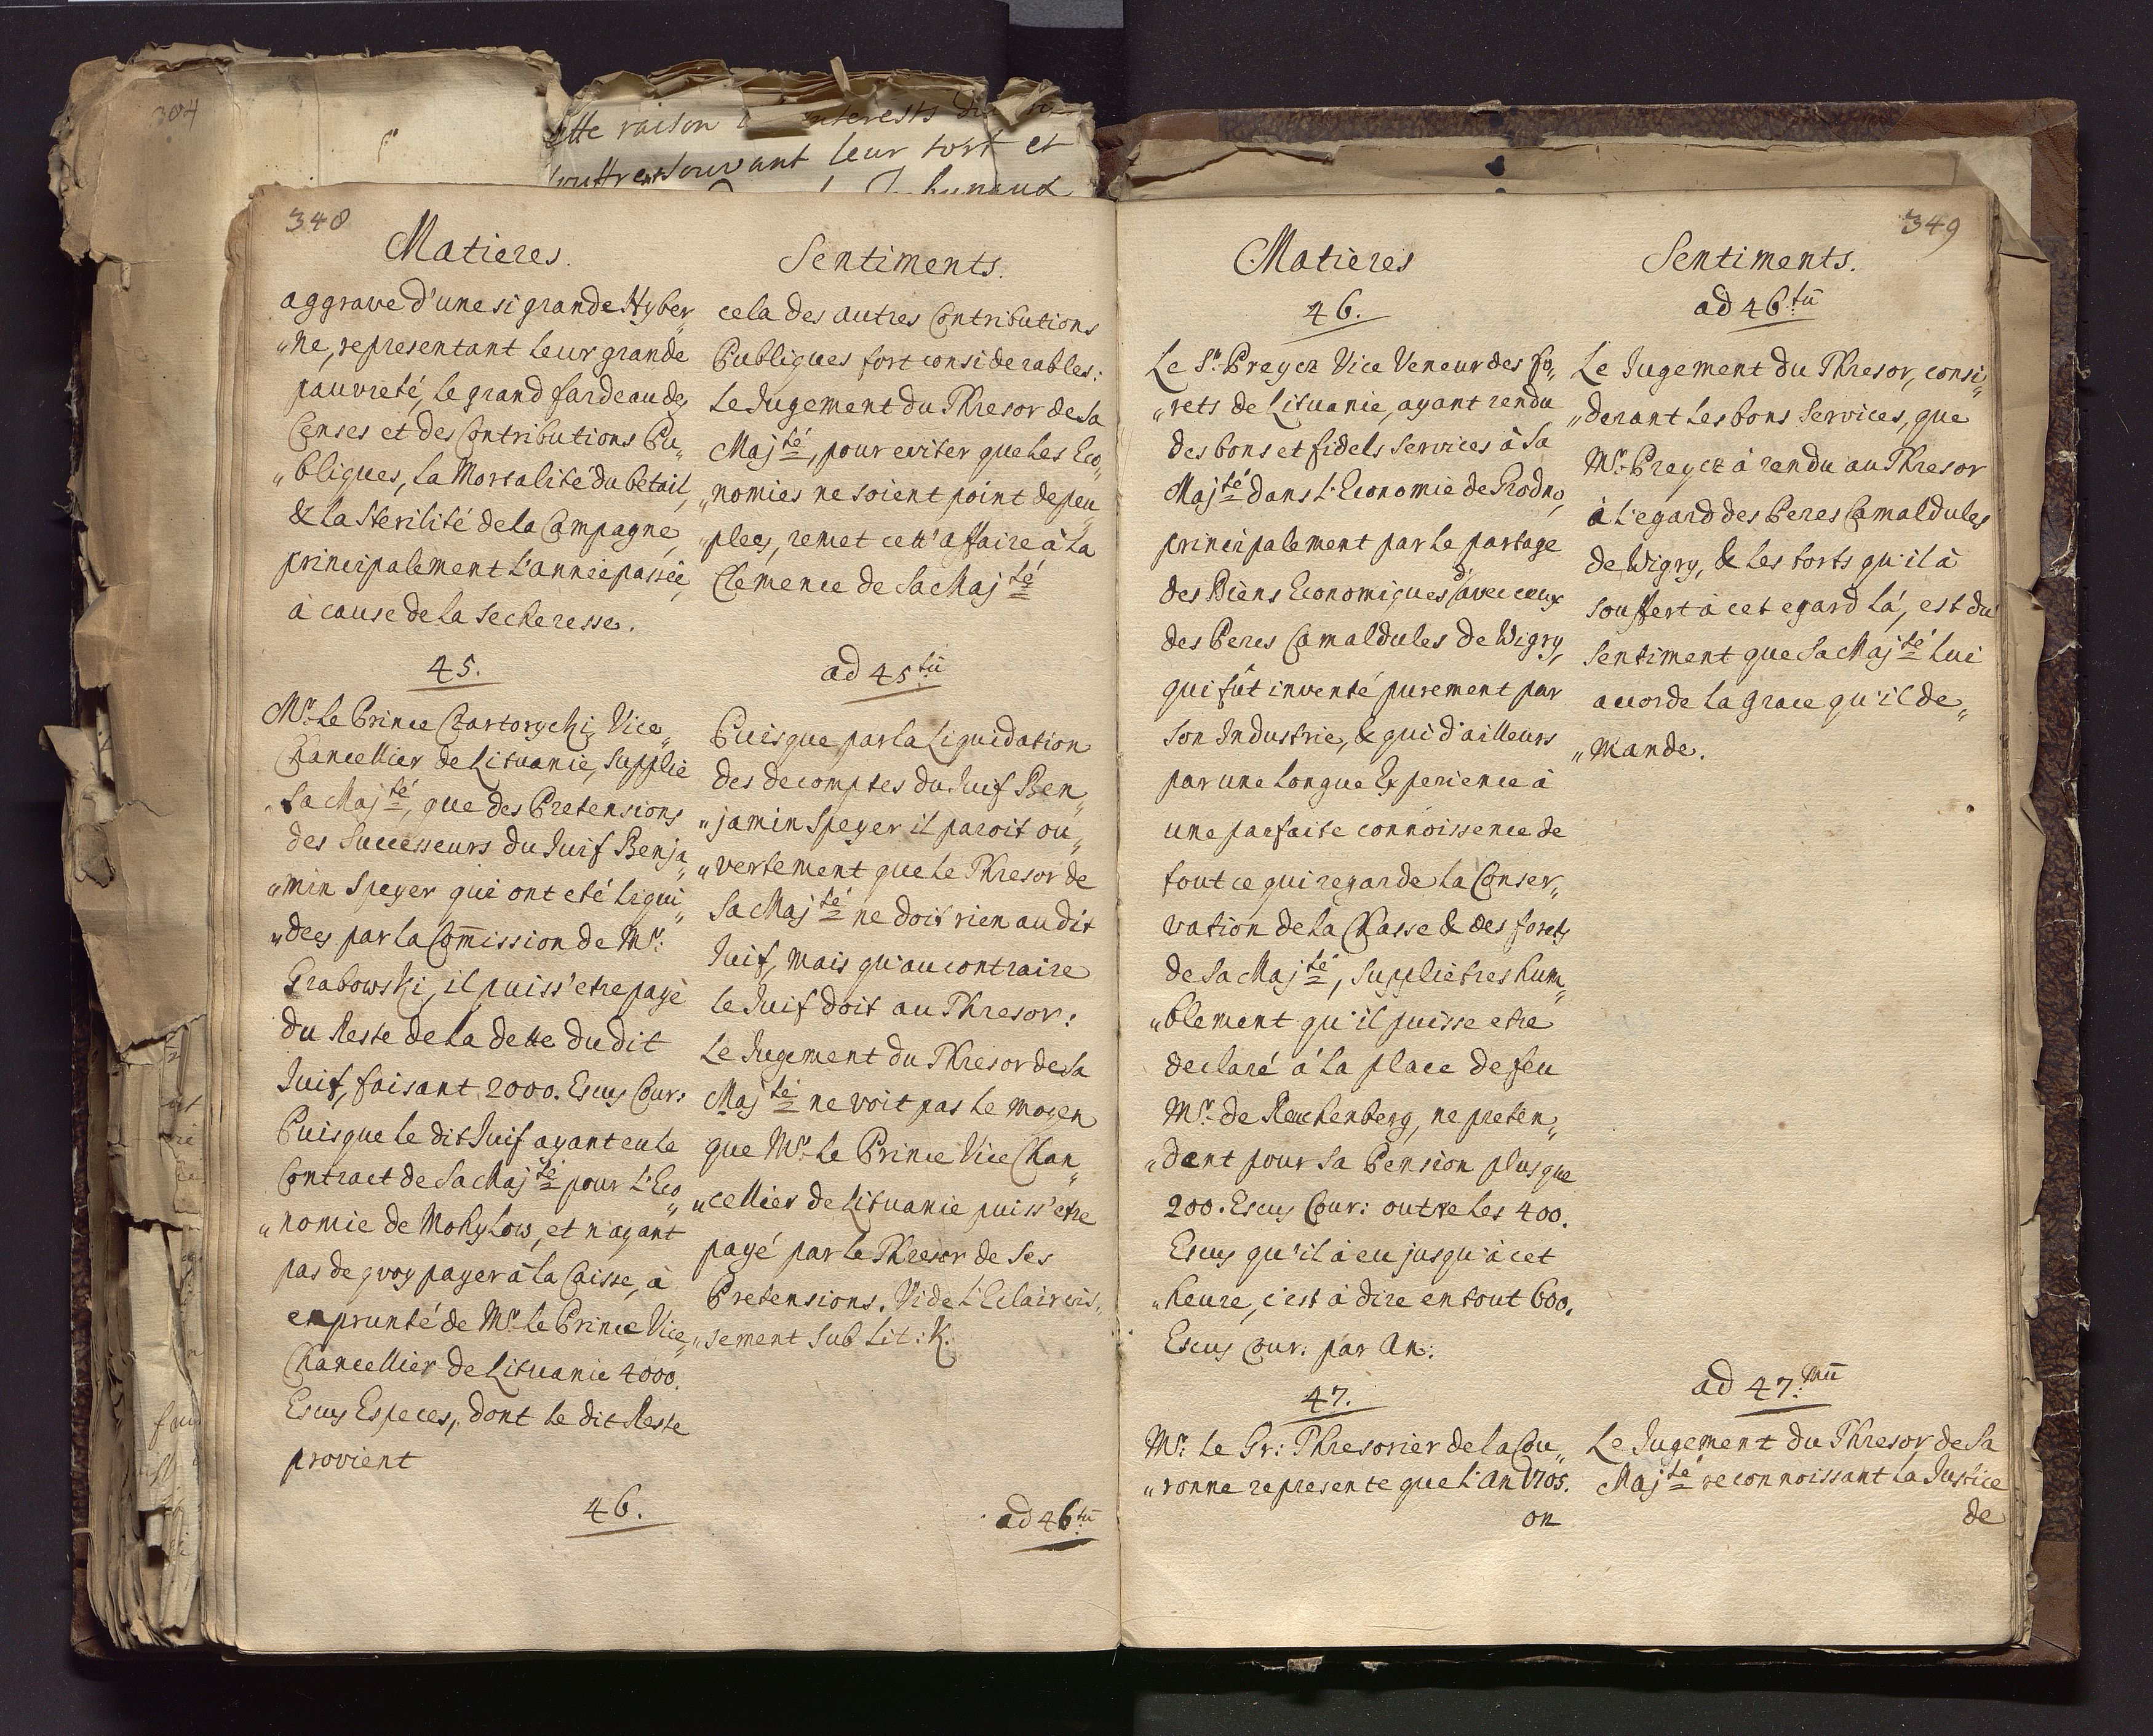 304
cette raison
leur tort et
348
Matieres.
aggrave d'une si grande Hyber„
„ne, representant leur grande
pauvreté, le grand fardeau des
Censes et des Contributions Pu„
„bliques, la Mortalité du betail,
& la Sterilité de la Campagne,
principalement l'année passée,
à cause de la secheresse.
45.
Mr. le Prince Czartorycki, Vice„
Chancellier de Lituanie, supplie
„Sa Majté, que des Pretensions
des Successeurs du Juif Benja„
„min Speyer qui ont eté liqui„
„dees par la Comission de Mr.
Grabowski, il puiss'etre payé
du Reste de la dette du dit
Juif, faisant 2000. Escus Cour:
Puisque le dit Juif ayant eu le
Contract de Sa Majté pour l'Eco„
„nomie de Mohylow, et n'ayant
pas de quoy payer à la Caisse, à
emprunté de Mr. le Prince Vice„
Chancellier de Lituanie 4000.
Escus Especes, dont le dit Reste
provient
46.
Sentiments.
cela des autres Contributions
Publiques fort considerables:
Le Jugement du Thresor de Sa
Majté, pour eviter que les Eco„
„nomies ne soient point depeu„
„plees, remet cett'affaire à la
Clemence de Sa Majté
ad 45tū
Puisque par la Liquidation
des decomptes du Juif Ben„
„jamin Speyer il paroit ou„
„vertement que le Thresor de
Sa Majté ne doit rien au dit
Juif, mais qu'au contraire
le Juif doit au Thresor:
Le Jugement du Thresor de Sa
Majté ne voit pas le moyen
que Mr. le Prince Vice Chan„
„cellier de Lituanie puiss'etre
payé par le Thresor de ses
Pretensions. Vide l'Eclaircis„
„sement sub Lit: K.
ad 46tū
349
Matieres
46.
Le Sr. Preyer Vice Veneur des fo„
„rets de Lituanie, ayant rendu
des bons et fidels services à Sa
Majté dans l'Economie de Grodno,
principalement par le partage
des Biens Economiques d'avec ceux
des Peres Camaldules de Wigry,
qui fût inventé purement par
son Industrie, & qui d'ailleurs
par une longue Experience à
une parfaite connoissence de
tout ce qui regarde la Conser„
vation de la Chasse & des forets
de Sa Majté, supplie tres hum„
„blement qu'il puisse etre
declaré à la place de feu
Mr. de Reuchenberg, ne preten„
„dent pour sa Pension plus que
200. Escus Cour: outre les 400.
Escus qu'il à eu jusqu'à cet
„heure, c'est à dire en tout 600.
Escus Cour. par An:
47.
Mr. le Gr: Thresorier de la Cou„
„ronne represente que l'An 1705.
on
Sentiments.
ad 46.tū
Le Jugement du Thresor, consi„
„derant les bons services, que
Mr. Preyer à rendu au Thresor
à l'egard des Peres Camaldules
de Wigry, & les torts qu'il à
souffert à cet egard là, est du
sentiment que Sa Majté lui
accorde la grace qu'il de„
„mande.
ad 47.mū
Le Jugement du Thresor de Sa
Majté reconnoissant la Justice
de